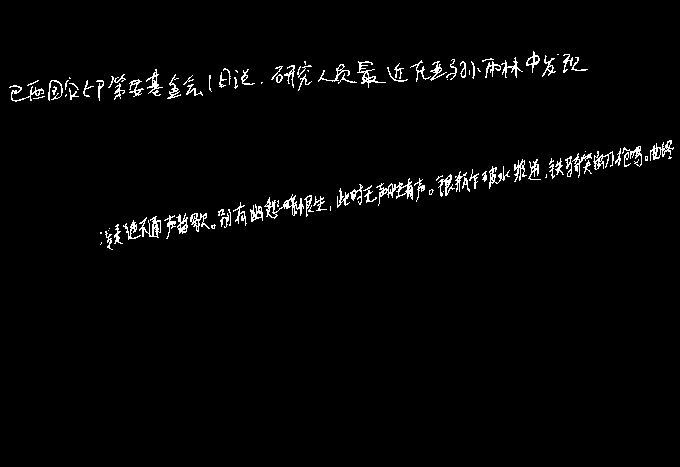 巴西国家印第安基金会1日说,研究人员最近在亚马孙雨林中发现
凝绝不通声暂歇。别有幽愁暗恨生,此时无声胜有声。银瓶乍破水浆迸,铁骑突出刀枪鸣。曲终